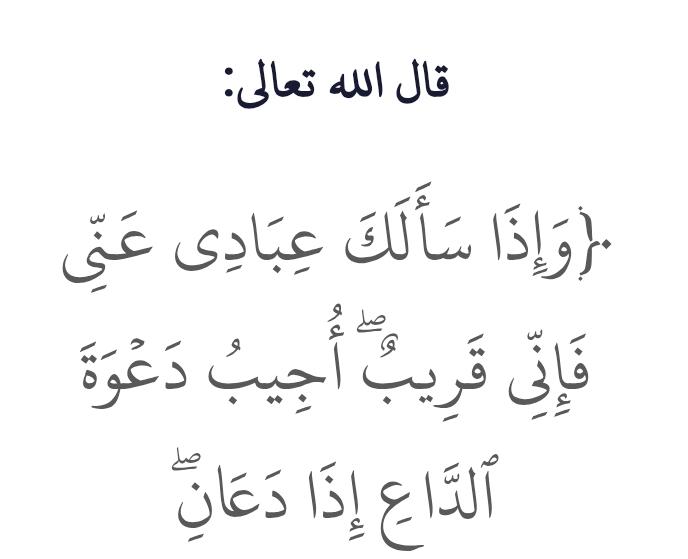 قال الله تعالى:
﴿وَإِذَا سَأَلَكَ عِبَادِى عَنِّى
فَإِنِّى قَرِيبٌ ۖ أُجِيبُ دَعْوَةَ
ٱلدَّاعِ إِذَا دَعَانِ ۖ